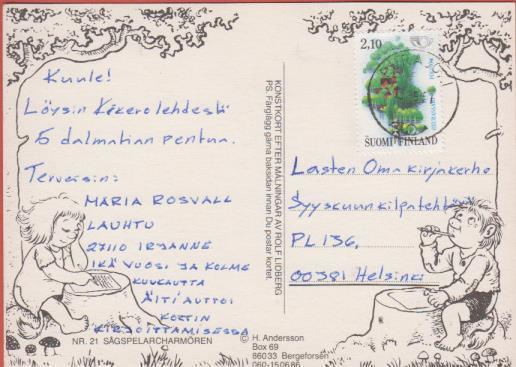 Kuule!
Löysin Kikerolehdestä
6 dalmatian pentua.
Terveisin:
MARIA ROSVALL
LAUHTU
27110 IRJANNE
IKÄ VUOSI JA KOLME
KUUKAUTTA
ÄITI AUTTOI
KORTIN
KIRJOITTAMISESSA
NR. 21 SÅGSPELARCHARMÖREN
KONSTKORT EFTER MÅLNINGAR AV ROLF LIDBERG
PS. Färglägg gärna baksidan innan Du postar kortet.
© H. Andersson
Box 69
860 33 Bergeforsen
060-150686
2,10
SUOMI FINLAND
Lasten Oma kirjakerho
Syyskuun kilpatehtävä
PL 136,
00381 Helsinki